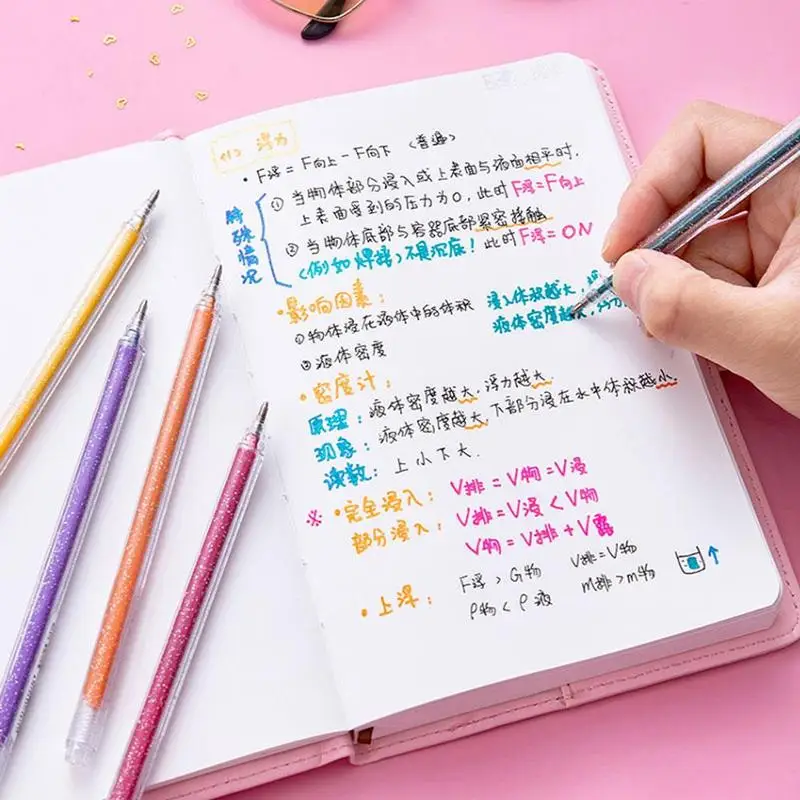 <1> 浮力
• F浮 = F向上 - F向下 〈普遍〉
特殊情况
① 当物体部分浸入或上表面与液面相平时,
上表面受到的压力为0, 此时 F浮=F向上
② 当物体底部与容器底部紧密接触
(例如焊接)不是沉底! 此时F浮=0N
•影响因素:
①物体浸在液体中的体积 浸入体积越大,
②液体密度 液体密度越大,
• 密度计:
原理: 液体密度越大, 浮力越大.
现象: 液体密度越大, 下部分浸在水中体积越小.
读数: 上小下大.
※ •完全浸入: V排 = V物 = V浸
部分浸入: V排 = V浸 < V物
V物 = V排 + V露
•上浮: F浮 > G物 V排=V物
ρ物 < ρ液 m排>m物